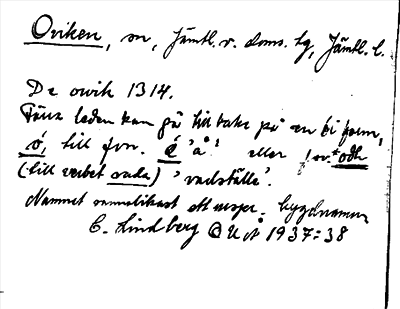 Oviken, sn, Jämtl. v. doms. hg, Jämtl. l.
De owik 1314.
Förra leden kan gå tillbaka på en
ó, till fvn. á 'å' eller *odh
(till verbet vada) 'vadställe'.
Namnet sannolikast ett urspr. bygdnamn
C. Lindberg OUÅ 1937:38